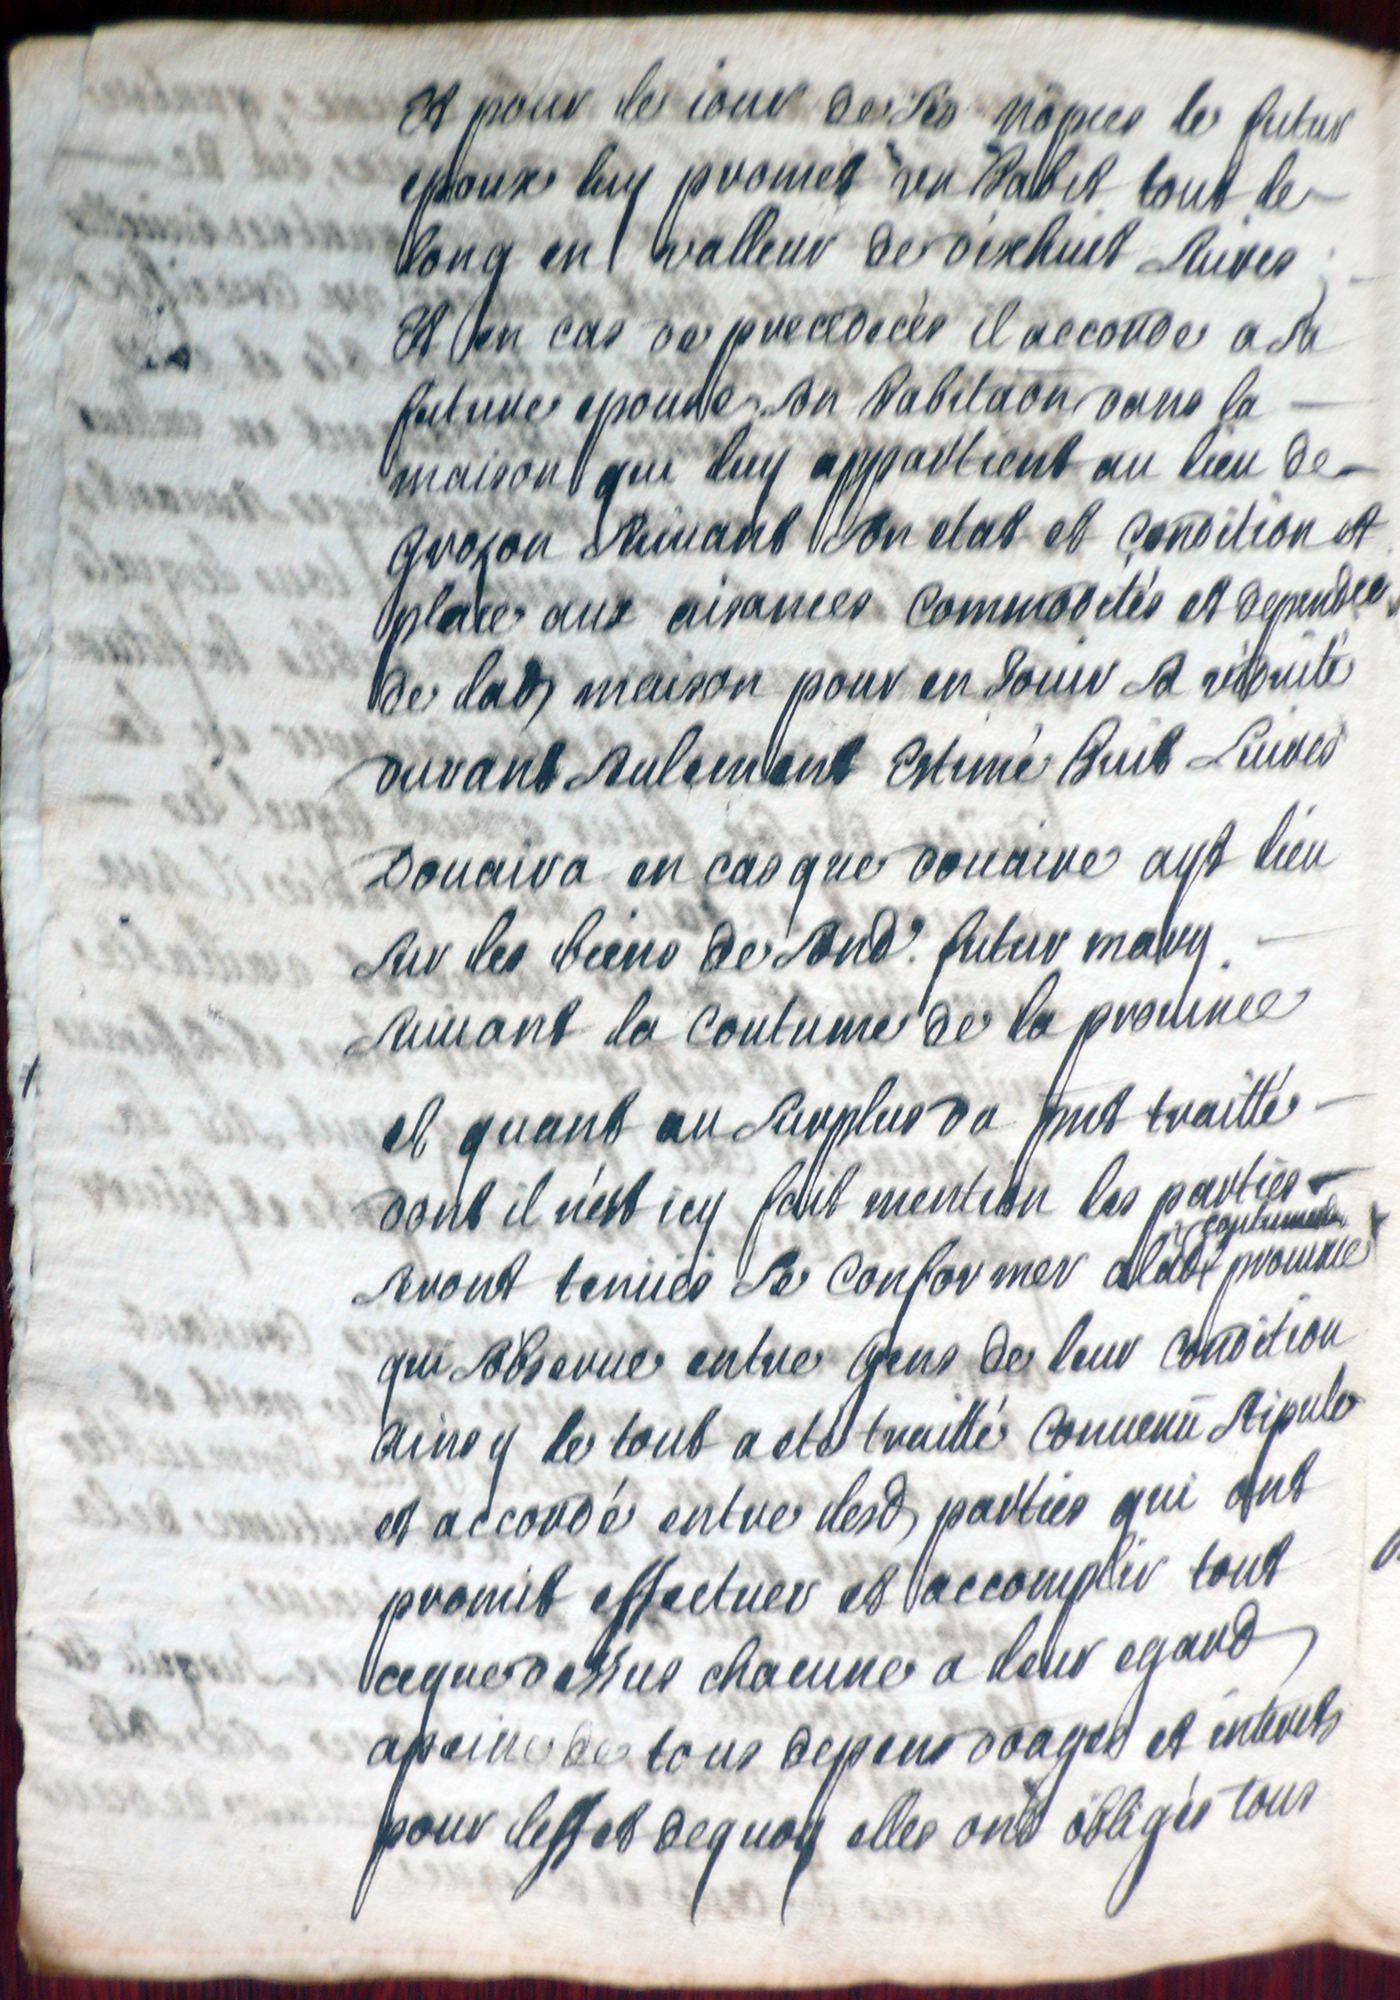 Et pour le iour de ses nopces le futur
epoux luy promet un habit tout le
long en valleur de dixhuit Livres ;
Et en cas de precedecés il accorde a sa
future epouse son habitaōn dans la
maison qui luy appartient au lieu de
grozon suivant son etat et condition et
place aux aisances commodités et dependces
de lad maison pour en Jouir sa viduité
durant seulement Estimé huit Livres
Douaira en cas que douaire ayt lieu
sur les biens de sond. futur mary
suivant la coutume de la province
et quant au surplus du pnt traitté
dont il n'est icy fait mention les parties
coutume de
seront tenües se conformer a lad province
qui s'observe entre gens de leur condition
ainsy le tout a eté traitté convenu stipulé
et accordé entre lesd parties qui ont
promit effectuer et accomplir tout
ceque dessus chacune a leur egard
apeine de tous depens doages et interets
pour leffet dequoy elles ont obligés tous